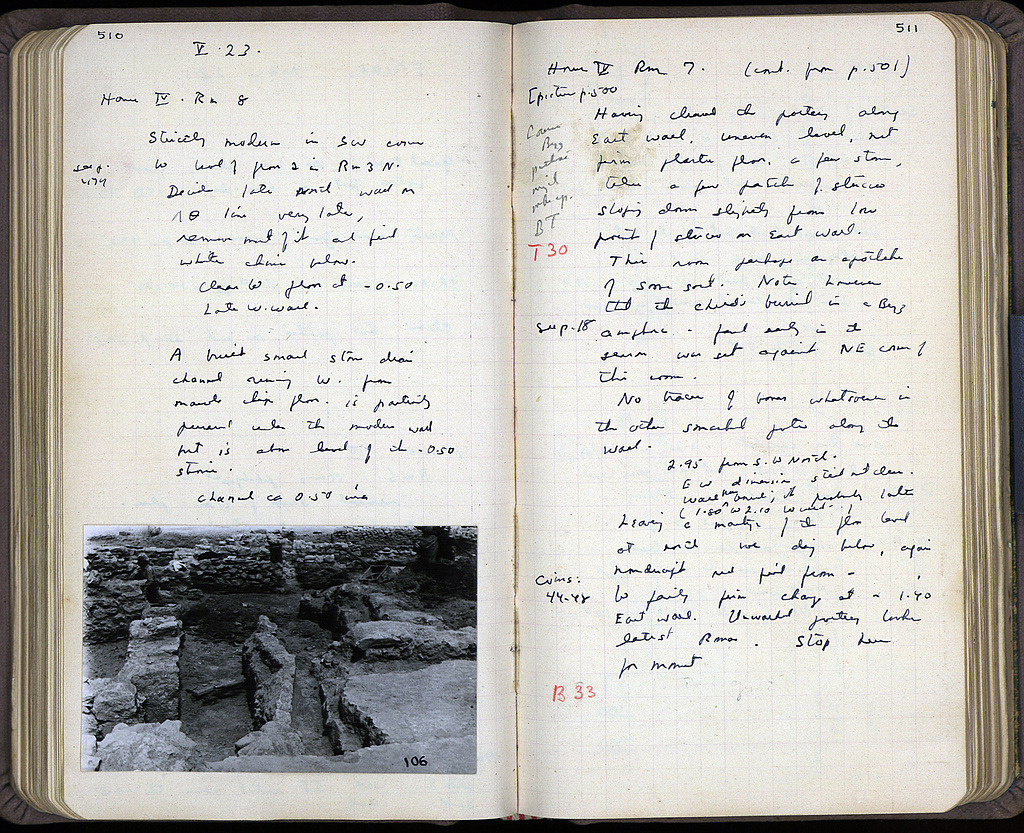 510
V. 23.
House IV. Rm 8
Strictly modern in SW corner
to level of floor 2 in Rm 3 N.
Decide late north wall on
line very late,
remove most of it and find
white below.
Clear to floor at -0.50
Late W. wall.
A built small stone drain
channel running W. from
marble chip floor. is partially
under the modern wall
but is above level of the -0.50
Channel ca 0.50
106
511
House IV Rm 7. (cont. from p. 501)
[picture p. 500
Having cleared the pottery along
East wall, uneven level, not
firm plaster floor, a few stones,
a few patches of stucco
sloping down slightly from low
point of stucco on East wall.
BT
T 30
This room perhaps an apotheke
of some sort. Note however
that the child's burial in a Byz
amphora - found early in the
season was set against NE corner of
this room.
No traces of bones whatsoever in
the other smashed pottery along the
wall.
2.95 from S. to North.
E W dimension still not clear.
probably later
Leaving a of the floor level
at north we dig below, again
nondescript red fill from -
Coins:
44-48
to fairly firm change at - 1.40
East wall. Unwashed pottery looks
latest Roman. Stop here
for moment
B 33